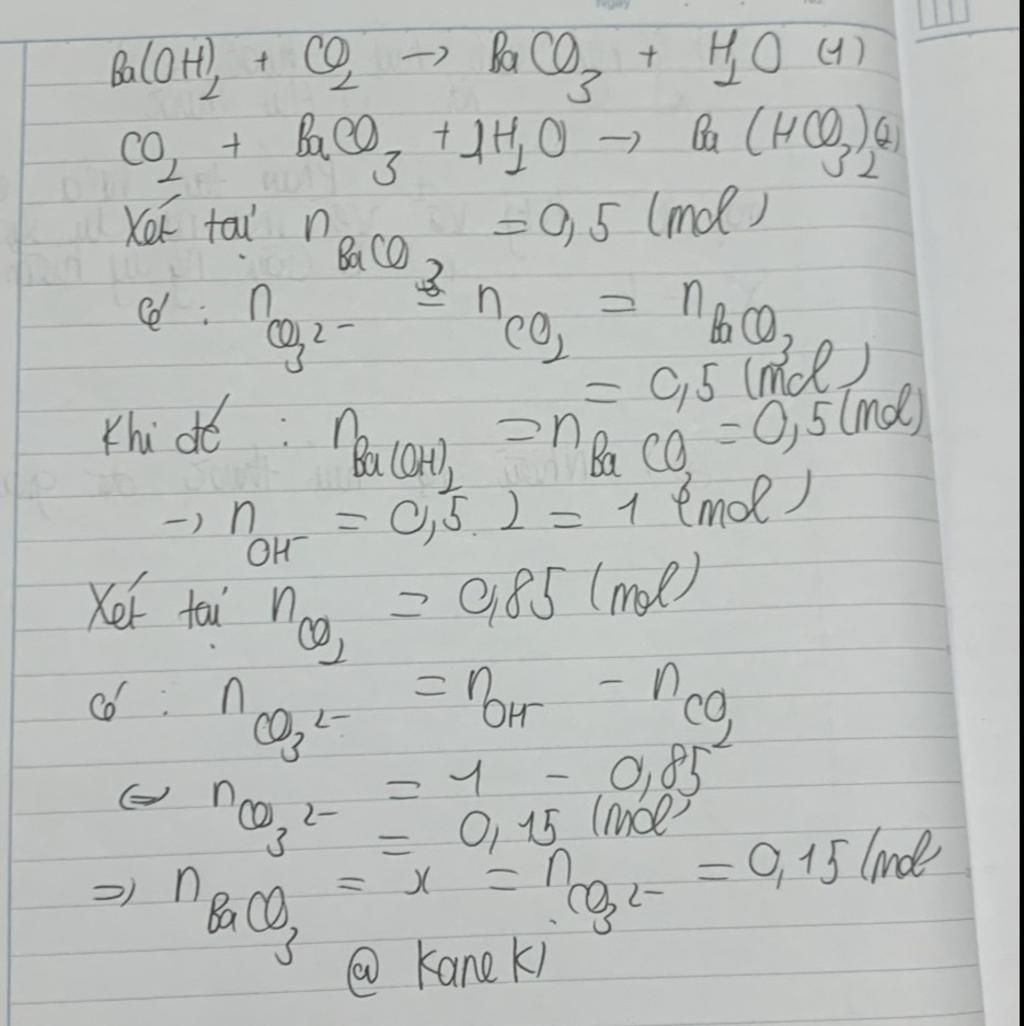 Ba(OH)₂ + CO₂ → BaCO₃ + H₂O (1)
CO₂ + BaCO₃ + H₂O → Ba(HCO₃)₂ (2)
Xét tại n BaCO₃ = 0,5 (mol)
Có : n CO₃²⁻ = n CO₂ = n BaCO₃
= 0,5 (mol)
Khi đó : n Ba(OH)₂ = n BaCO₃ = 0,5 (mol)
→ n OH⁻ = 0,5 . 2 = 1 (mol)
Xét tại n CO₂ = 0,85 (mol)
Có : n CO₃²⁻ = n OH⁻ - n CO₂
⇔ n CO₃²⁻ = 1 - 0,85
= 0,15 (mol)
⇒ n BaCO₃ = x = n CO₃²⁻ = 0,15 (mol
@ Kane Ki